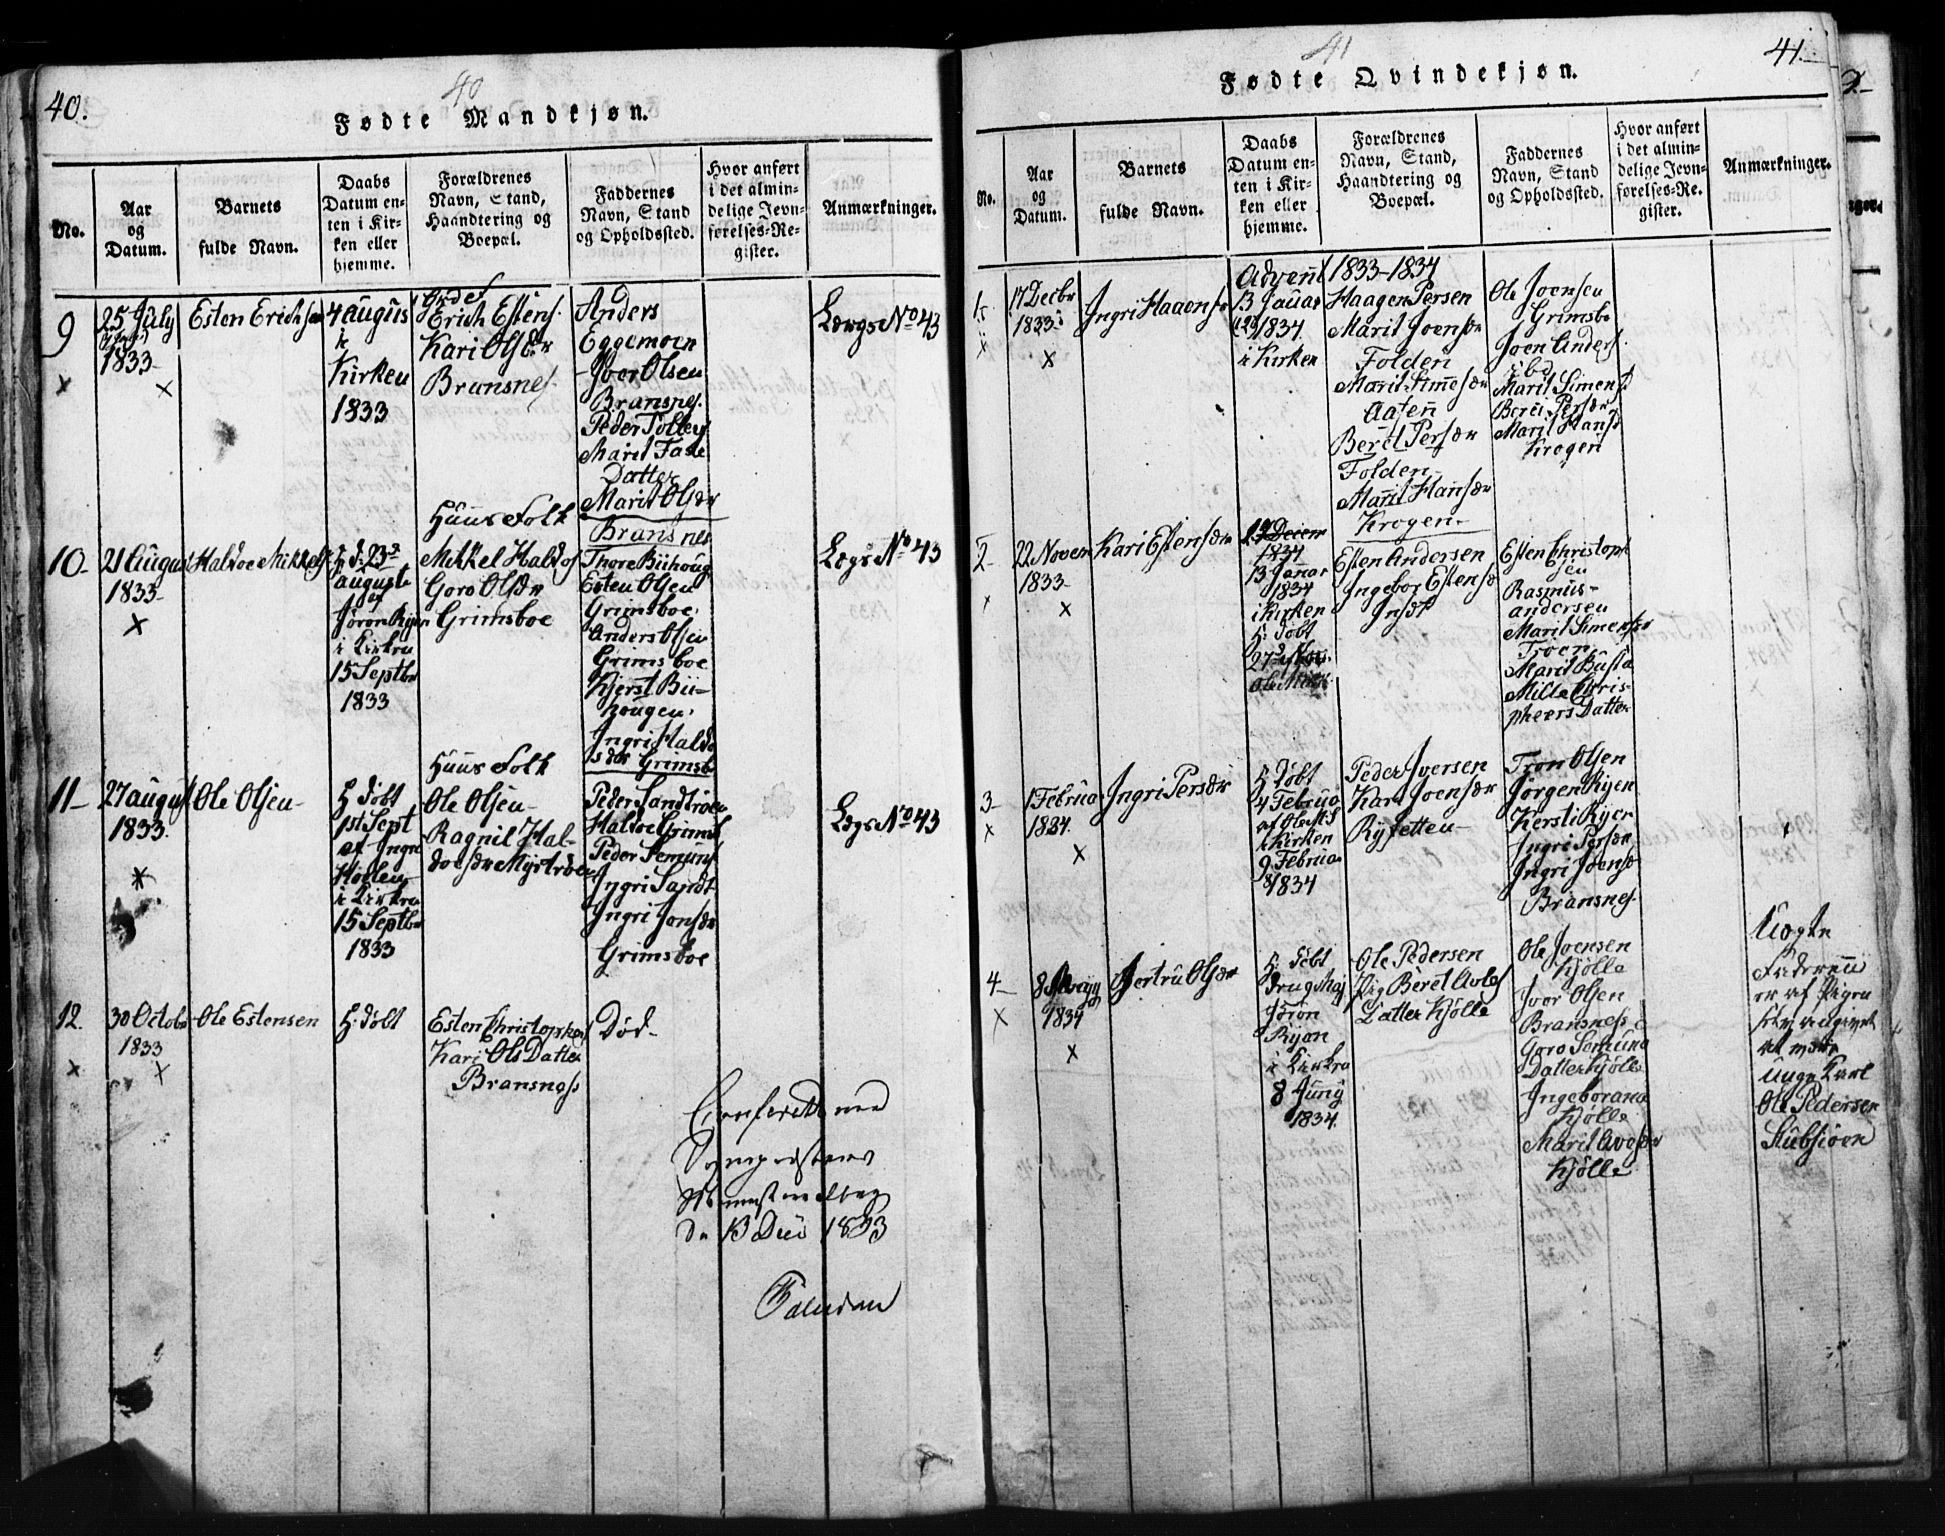 40.
40
Fødte Mandkjøn.
No.
Aar
og
Datum.
Barnets
fulde Navn.
Daabs
Datum en-
ten i Kir-
ken eller
hjemme.
Forældrenes
Navn, Stand,
Haandtering og
Boepæl.
Faddernes
Navn, Stand
og Opholdssted.
Hvor anført
i det almin-
delige Jevn-
førelses-Re-
gister.
Anmærkninger.
9
25 July
1833
Esten Erichsen
4 august
i
Kirken
1833
Erich Estens.
Kari Olsdr
Bransnes.
Anders
Eggemoen
Iver Olsen
Bransnes.
Peder Tollevs
Marit Faste
Datter
Marit Olsdr
Bransnes
Lægs No 43
10
21 August
1833
Haldoe Mikkels
h. d. 23de
auguste
af
Jøron Ryen
i Kirken
15 Septbr
1833
Huus Folk
Mikkel Haldos
Goro Olsdr
Grimsboe
Thore Biihoug
Esten Olsen
Grimsboe.
Anders Olsen
Grimsboe
Kjerst Bii-
hougen.
Ingri Haldo
sdar Grimsb
Lægs No 43
11
27 august
1833.
Ole Olsen
h. døbt
1st Sept
af Ingri
Hoelen
i Kirken
15 Septbr
1833
Huus Folk
Ole Olsen
Ragnil Hal-
doesdr Mystroen
Peder Sandtrøen
Haldoe Grimsb
Peder Semuns
Ingri Sandt
Ingri Jonsdr
Grimsboe
Lægs No 43
12.
30 Octobr
1833
Ole Estensen
h. døbt
Esten Christophers
Kari Ols Datter
Bransness
Død
Confereret med
Sognepræstens
Ministerialbog
d. 13 Dec 1833
41
41.
Fødte Qvindekjøn.
No.
Aar
og
Datum.
Barnets
fulde Navn.
Daabs
Datum en-
ten i Kir-
ken eller
hjemme.
Forældrenes
Navn, Stand,
Haandtering og
Boepæl.
Faddernes
Navn, Stand
og Opholdssted.
Hvor anført
i det almin-
delige Jevn-
førelses-Re-
gister.
Anmærkninger.
Advent 1833-1834
1.
17 Decbr
1833
Ingri Haagensdr
13 Januar
1834
i Kirken
Haagen Persen
Marit Joensdr
Folden
Marit Simesdr
Aasen
Beret Persdr
Folden
Marit Hansdr
Krogen
Ole Joensen
Grimsbo
Joen Anders.
Marit Simens
Beret Persdr
Marit Hans
Krogen
2
22 Novem
1833
Kari Estensdr
1834
13 Januar
1834
i Kirken
h. døbt
27de Nov.
Ole Moen
Esten Andersen
Ingebor Estensd
Indst
Esten Christoph
en
Rasmus
andersen
Marit Simensdr
Troen
Marit Busta
Mille Chris-
pheers Datter
3
1 Februa
1834.
Ingri Persdr
h. døbt
4 Februa
i Kirken
9 Februa
1834
Peder Iversen
Kari Joensdr
Rysetten
Tron Olsen
Jørgen Ryen
Kersti Ryen
Ingri Persdr
Ingri Joensd
Bransnes.
4
1834
Gjertru Olsdr
h. døbt
Jøron
Ryen
i Kirken
8 Juny
1834.
Ole Pedersen
Pig Beret Avles
Datter Kjølle
Ole Joensen
Kjølle
Iver Olsen
Bransness
Goro Semuns
Datter Kjølle
Ingeborana
Kjølle
Marit Avesdr
Kjølle
Uægte
Faderen
er af Pigen
udgivet
at være
Unge Karl
Ole Pedersen
Stubsjoen